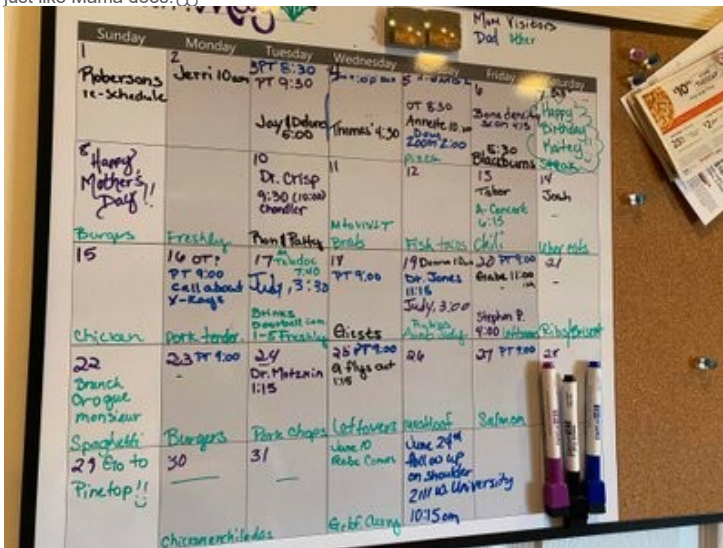 just like Mama does.
May
Mom Visitors
Dad other
Sunday
Monday
Tuesday
Wednesday
Friday
1
Robersons
re-schedule
2
Jerri 10am
3 PT 8:30
PT 9:30
Jay & Delores
5:00
4
Thomas' 4:30
5
OT 830
Annette 10:30
Dow
Zoom 2:00
Pizza
6
Bone density
5:30
Blackburns
Happy
Birthday
Steak
8 Happy
Mother's
Day!!
Burgers
Freshly
10
Dr. Crisp
9:30 (10:00)
Chandler
Ron & Patty
11
Brats
12
Fish tacos
13
Tabor
A-Concert
6:15
Chili
14
Josh
-
Uber eats
15
Chicken
16 OT?
PT 9:00
Call about
X-Rays
Pork tender.
17 Teledoc
7:40
Judy, 3:30
Brinks
Doorbell cam
1-5 Freshly
18
PT 9:00
Guests
19
Dr. Jones
11:15
Judy, 3:00
20 PT 9:00
Gabe 11:00
Stephen P.
4:00 leftovers
21
-
Ribs/Brisket
22
Brunch
Croque
monsieur
Spaghetti
23 PT 9:00
-
Burgers
24
Dr. Motznin
1:15
Pork chops
25 PT 9:00
G flys out
1:15
Leftovers
26
meatloaf
27 PT 9:00
Salmon
28
29 Go to
Pinetop!!
30
Chicken enchiladas
31
June 10
Gabe Comes
June 24th
follow up
on shoulder
2111 W. University
10:15am